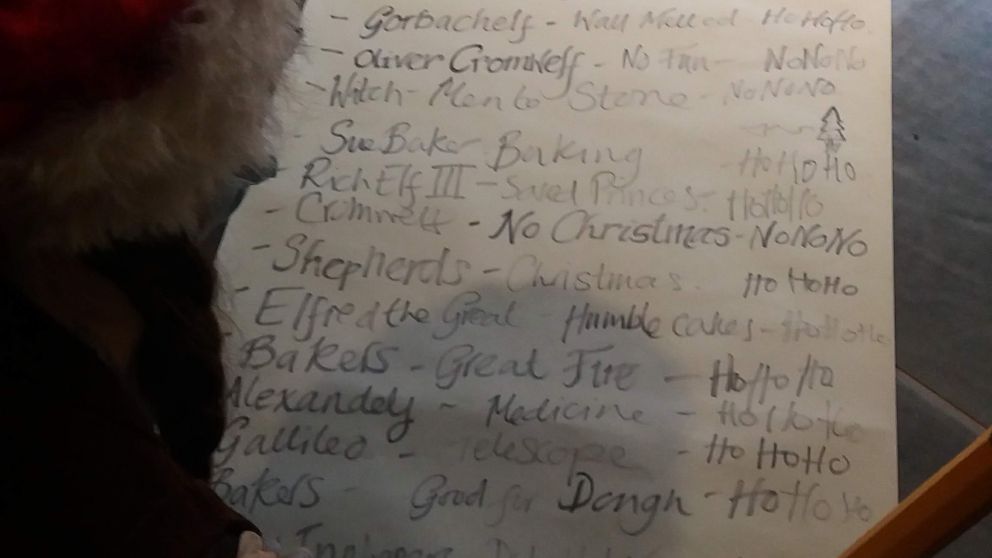 - Gorbachelf - Wall Melted HoHoHo.
- Oliver CromwElf - No Fun - NoNoNo
- Witch - Men to Stone - NoNoNo
Sue Baker Baking HoHoHo
- RichElf III - Saved Princes. HoHoHo
- Cromwell - No Christmas - NoNoNo
- Shepherds - Christmas. HoHoHo
- Elfred the Great Humble cakes - HoHoHo
- Bakers - Great Fire - HoHoHo
Alexandelf - Medicine - HoHoHo
Gallileo - Telescope - HoHoHo
Bakers - Good for Dough - HoHoHo